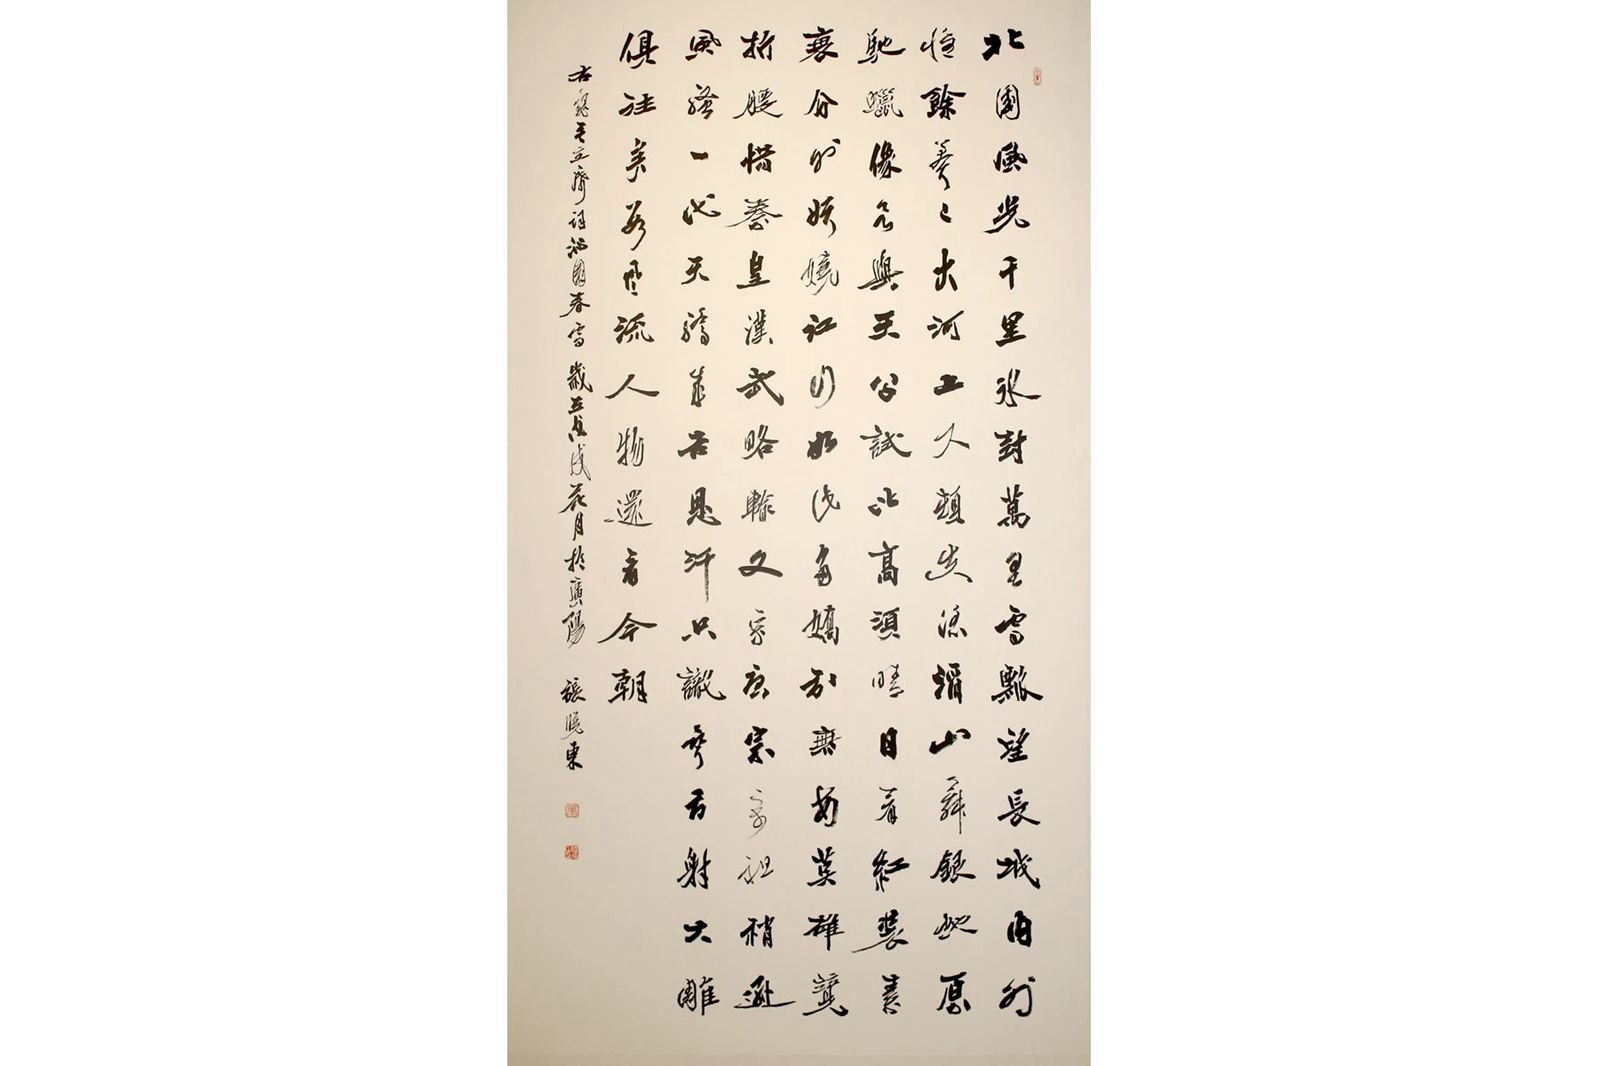 北國風光千里冰封萬里雪飄望長城内外
惟餘莽々大河上下頓失滔滔山舞銀蛇原
馳蠟像欲與天公試比高須晴日看紅裝素
裹分外妖嬈江山如此多嬌引無數英雄競
折腰惜秦皇漢武略輸文采唐宗宋祖稍遜
風騷一代天驕成吉思汗只識彎弓射大雕
俱往矣數風流人物還看今朝
右錄毛主席詞沁園春雪 歲在戊戌花月於廣陽 張曉東